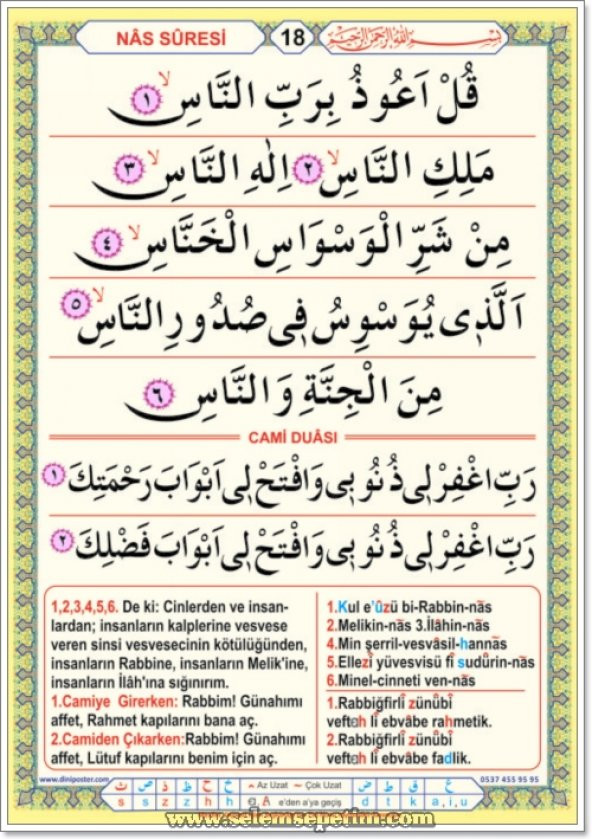 NÂS SÛRESİ
18
بِسْمِ اللّٰهِ الرَّحْمٰنِ الرَّحِيمِ
قُلْ اَعُوذُ بِرَبِّ النَّاسِۙ ١
مَلِكِ النَّاسِۙ ٢ اِلٰهِ النَّاسِۙ ٣
مِنْ شَرِّ الْوَسْوَاسِ الْخَنَّاسِۙ ٤
اَلَّذ۪ي يُوَسْوِسُ ف۪ي صُدُورِ النَّاسِۙ ٥
مِنَ الْجِنَّةِ وَ النَّاسِ ٦
CAMİ DUÂSI
رَبِّ اغْفِرْ ل۪ي ذُنُوب۪ي وَافْتَحْ ل۪ي اَبْوَابَ رَحْمَتِكَ ١
رَبِّ اغْفِرْ ل۪ي ذُنُوب۪ي وَافْتَحْ ل۪ي اَبْوَابَ فَضْلِكَ ٢
1,2,3,4,5,6. De ki: Cinlerden ve insan-
lardan; insanların kalplerine vesvese
veren sinsi vesvesecinin kötülüğünden,
insanların Rabbine, insanların Melik'ine,
insanların İlâh'ına sığınırım.
1.Camiye Girerken: Rabbim! Günahımı
affet, Rahmet kapılarını bana aç.
2.Camiden Çıkarken:Rabbim! Günahımı
affet, Lütuf kapılarını benim için aç.
1.Kul e'ûzü bi-Rabbin-nâs
2.Melikin-nâs 3.İlâhin-nâs
4.Min şerril-vesvâsil-hannâs
5.Ellezî yüvesvisü fî sudûrin-nâs
6.Minel-cinneti ven-nâs
1.Rabbiğfirlî zünûbî
veftah lî ebvâbe rahmetik.
2.Rabbiğfirlî zünûbî
veftah lî ebvâbe fadlik.
www.diniposter.com
ث س ص ذ ز ح خ Az Uzat ~ Çok Uzat ض ط ق ع
0537 455 95 95
s s s z z h h e'den a'ya geçiş d t k a,i,u
www.selemsepetim.com